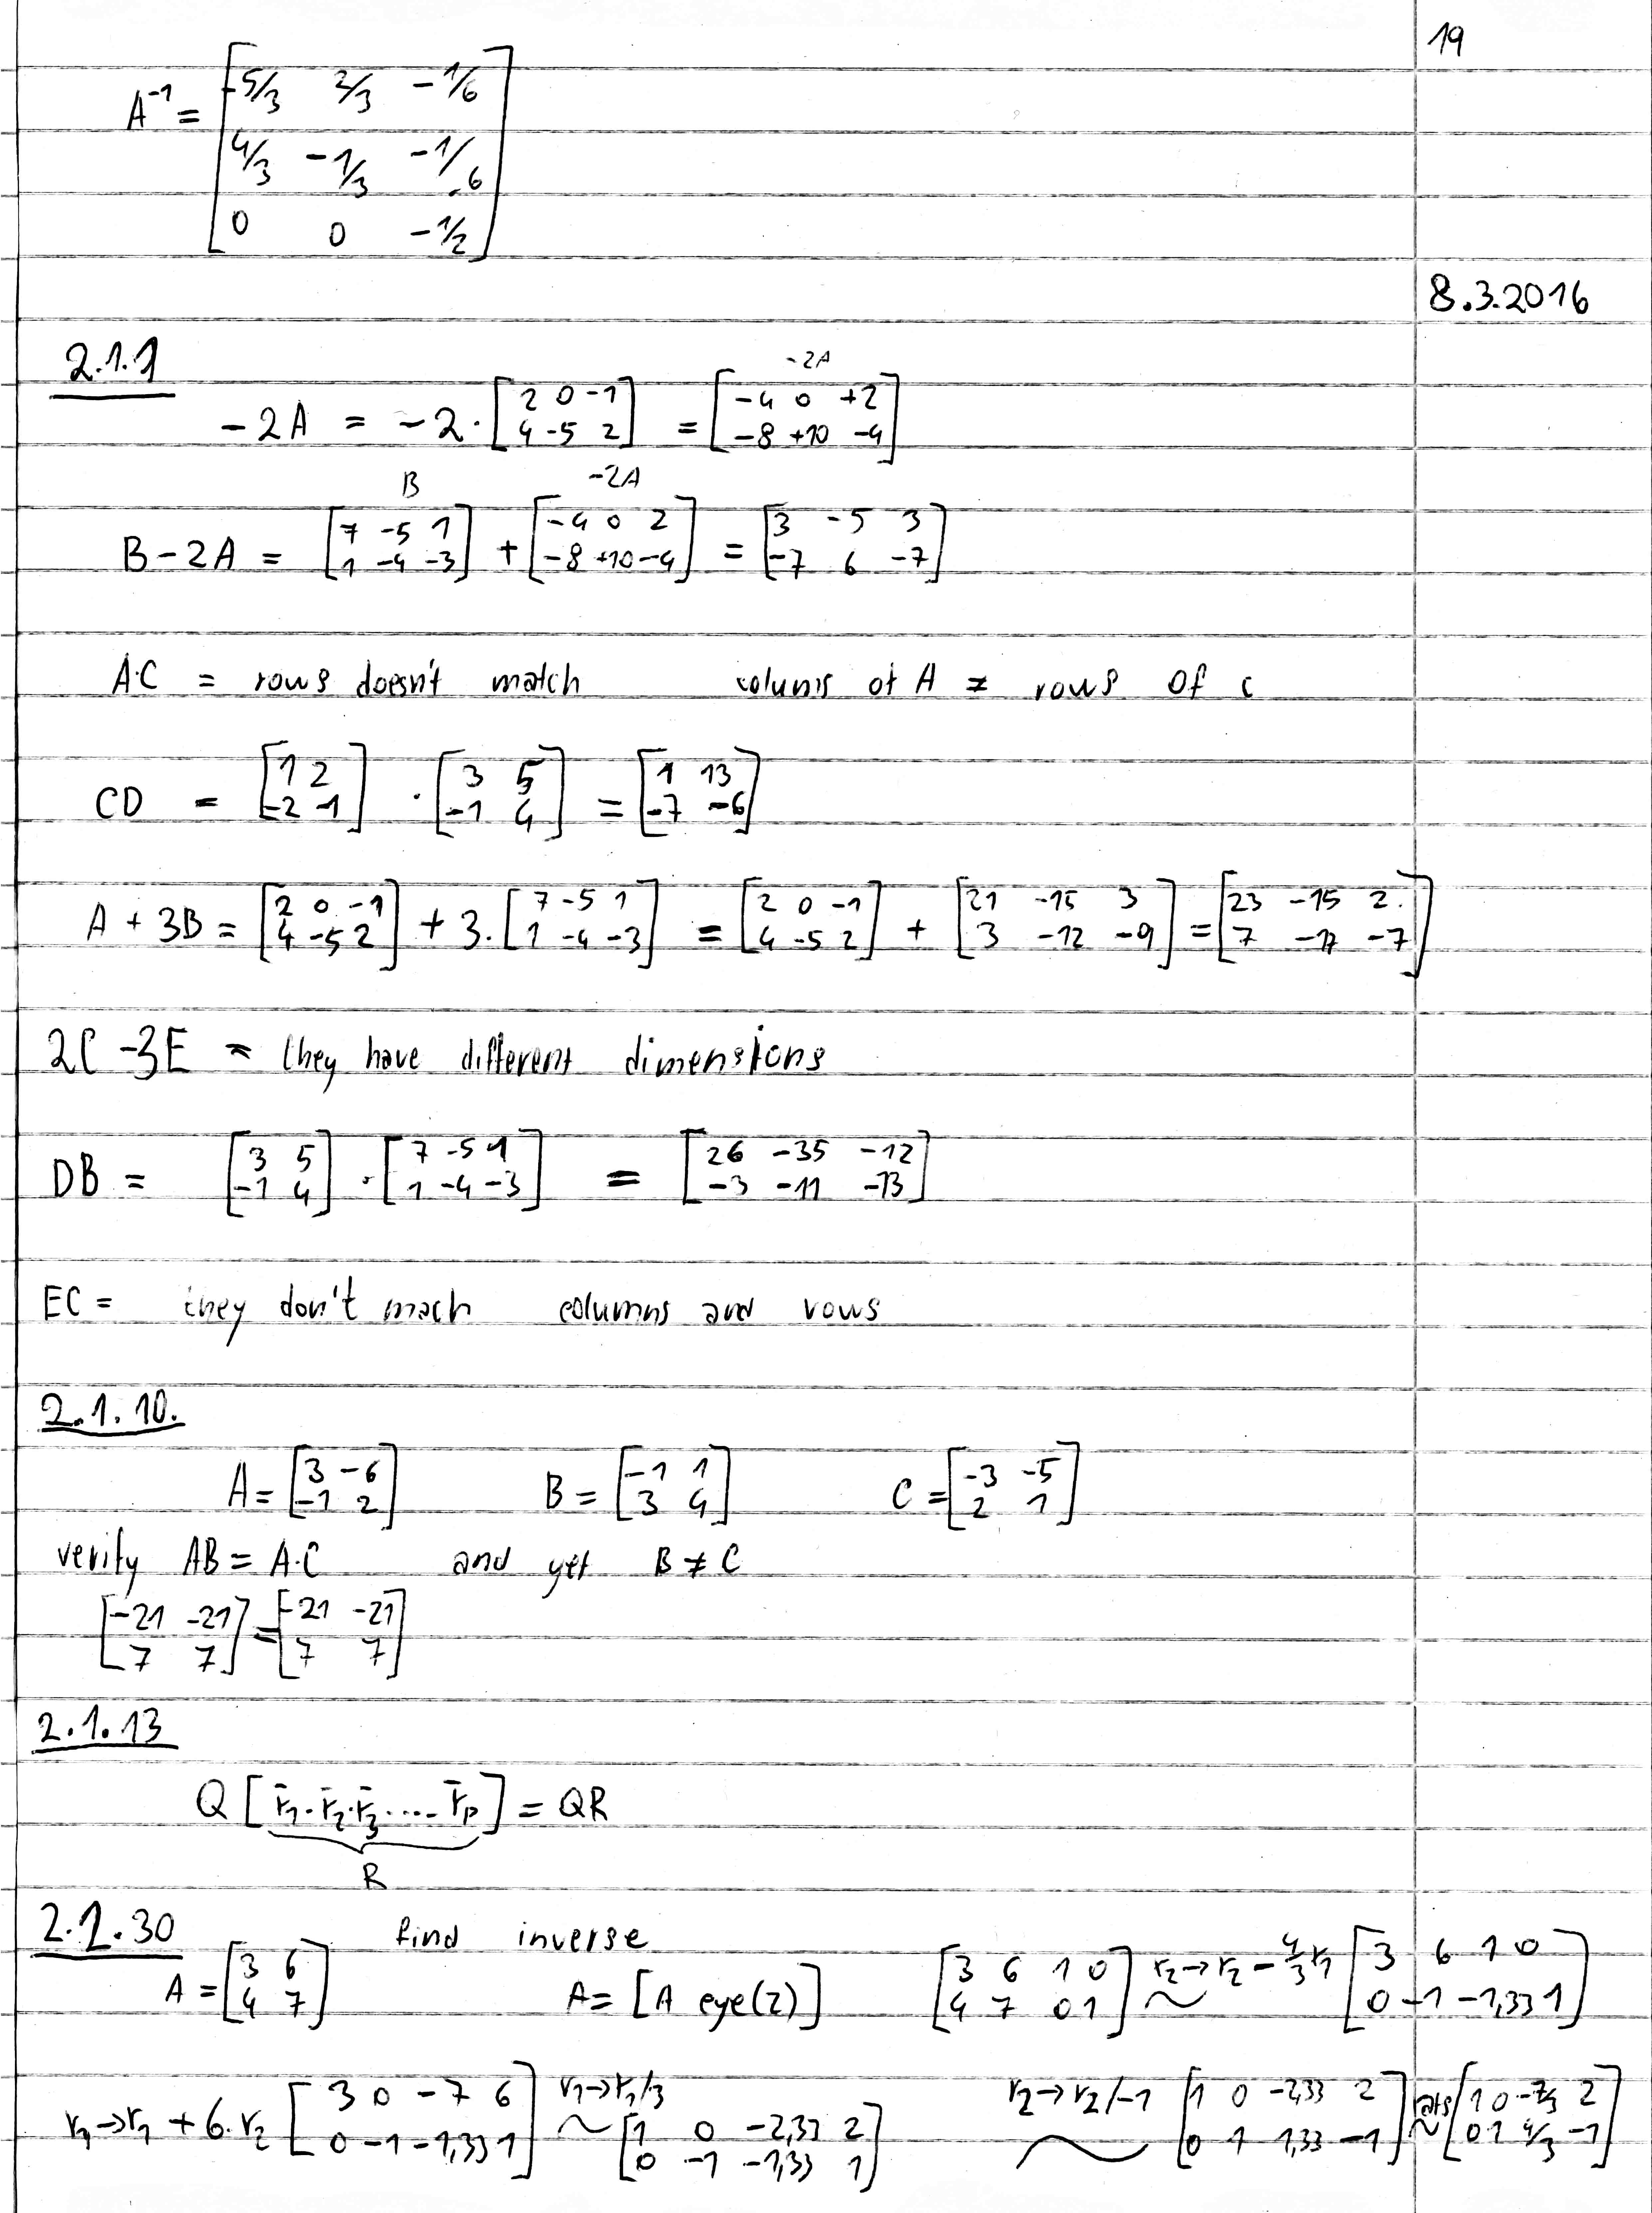 19
A⁻¹ = [-5/3 2/3 -1/6
4/3 -1/3 -1/6
0 0 -1/2]
8.3.2016
2.1.1
-2A
-2A = -2 · [2 0 -1; 4 -5 2] = [-4 0 +2; -8 +10 -4]
B -2A
B - 2A = [7 -5 1; 1 -4 -3] + [-4 0 2; -8 +10 -4] = [3 -5 3; -7 6 -7]
A·C = rows doesn't match colums of A ≠ rows of c
CD = [1 2; -2 -1] · [3 5; -1 4] = [1 13; -7 -6]
A + 3B = [2 0 -1; 4 -5 2] + 3. [7 -5 1; 1 -4 -3] = [2 0 -1; 4 -5 2] + [21 -15 3; 3 -12 -9] = [23 -15 2; 7 -17 -7]
2C - 3E = they have different dimensions
DB = [3 5; -1 4] · [7 -5 1; 1 -4 -3] = [26 -35 -12; -3 -11 -13]
EC = they don't mach columns and rows
2.1.10.
A = [3 -6; -1 2] B = [-1 1; 3 4] C = [-3 -5; 2 1]
verify AB = A·C and yet B ≠ C
[-21 -21; 7 7] = [-21 -21; 7 7]
2.1.13
Q [r̄₁ · r̄₂ · r̄₃ .... r̄p] = QR
R
2.1.30 find inverse
A = [3 6; 4 7] A = [A eye(2)] [3 6 1 0; 4 7 0 1] r₂→r₂ - 4/3 r₁ ~ [3 6 1 0; 0 -1 -1,33 1]
r₁→r₁ + 6·r₂ [3 0 -7 6; 0 -1 -1,33 1] r₁→r₁/3 ~ [1 0 -2,33 2; 0 -1 -1,33 1] r₂→r₂/-1 ~ [1 0 -2,33 2; 0 1 1,33 -1] rats ~ [1 0 -7/3 2; 0 1 4/3 -1]